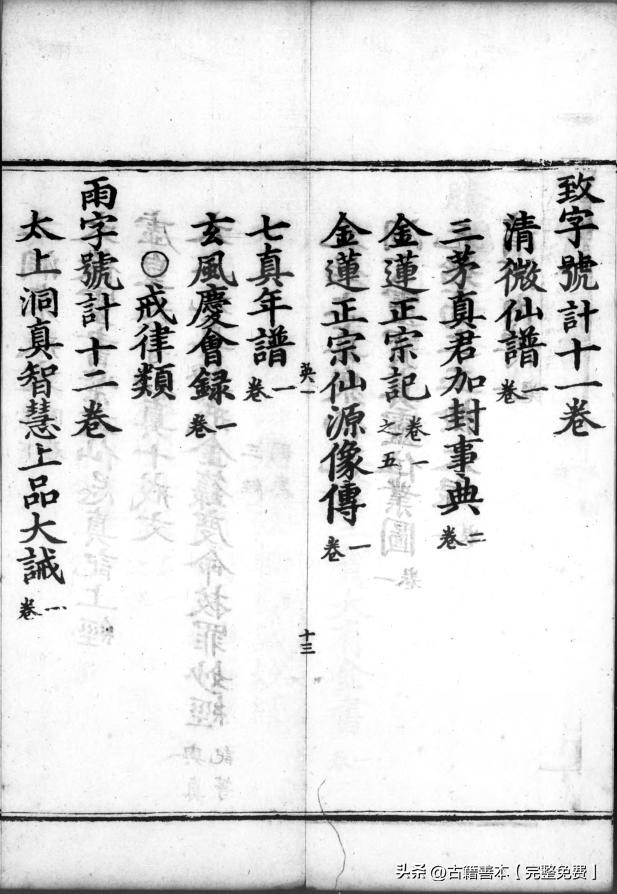 致字號計十一卷
清微仙譜一卷
三茅真君加封事典二卷
金蓮正宗記卷一之五
金蓮正宗仙源像傳一卷
英一
十三
七真年譜一卷
玄風慶會録一卷
〇戒律類
雨字號計十二卷
太上洞真智慧上品大誡一卷
头条@古籍善本【完整免费】